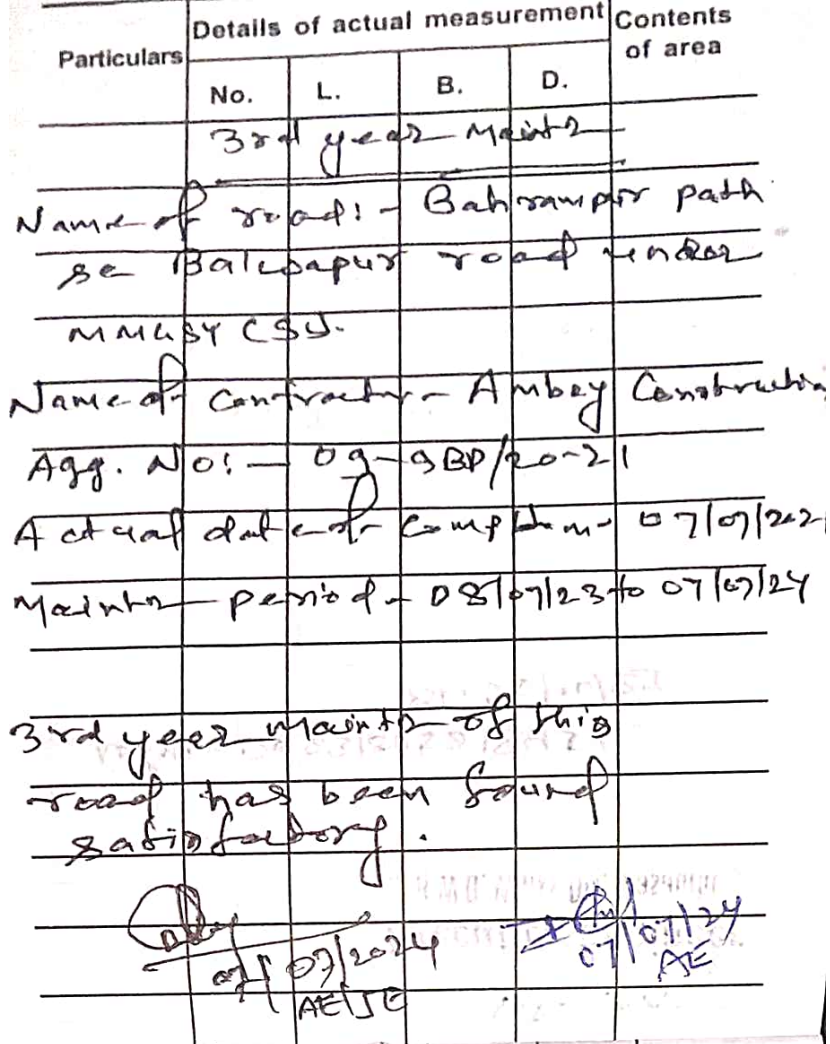 Particulars Details of actual measurement Contents of area
No. L. B. D.
3rd year Maintn
Name of road:- Bahrampur path
se Balupapur road under
MMGSY CSU.
Name of Contractor - Ambey Construction
Agg. No:- 09-SBD/20-21
Actual date of Completion- 07/07/202
Maintn period- 08/07/23 to 07/07/24
3rd year Maintn of this
road has been found
satisfactory.
07/07/2024 07/07/24
AE/JE AE